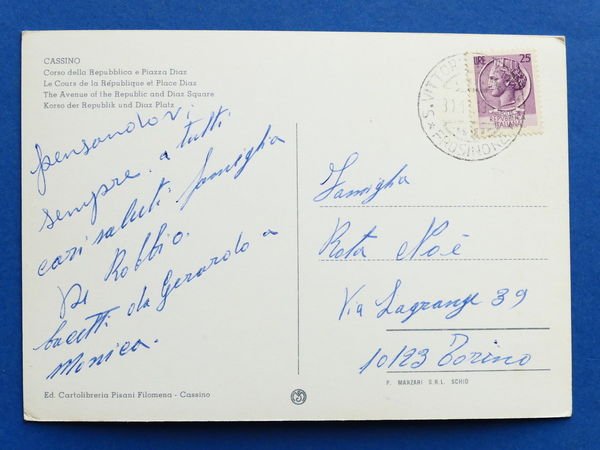 CASSINO
Corso della Repubblica e Piazza Diaz
Le Cours de la République et Place Diaz
The Avenue of the Republic and Diaz Square
Korso der Republik und Diaz Platz
pensandovi
sempre. a tutti.
cari saluti. famiglia
Di Robbio.
bacetti da Gerardo a
Monica.
Ed. Cartolibreria Pisani Filomena - Cassino
LIRE 25
REPUBBLICA
ITALIANA
S. VITTOR
FROSINONE
Famiglia
Rota Noè
Via Lagrange 39
10123 Torino
F. MANZARI S.R.L. SCHIO